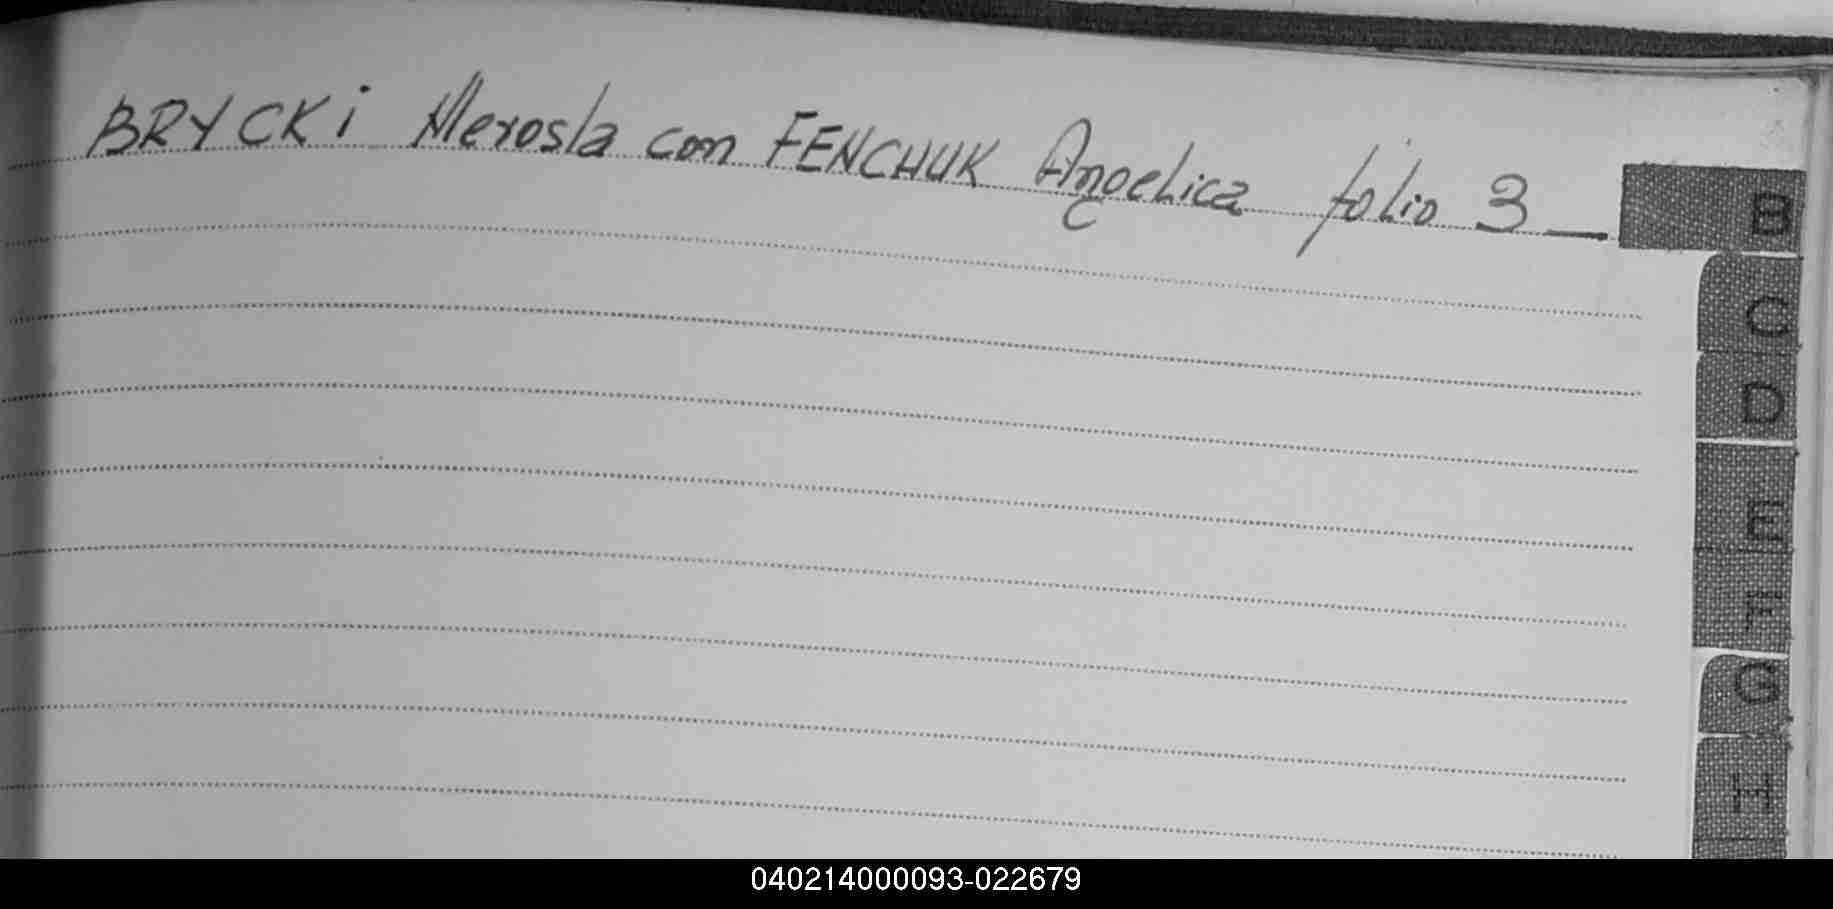 BRYCKi Merosla con FENCHUK Angelica folio 3
B
C
D
E
F
G
H
040214000093-022679